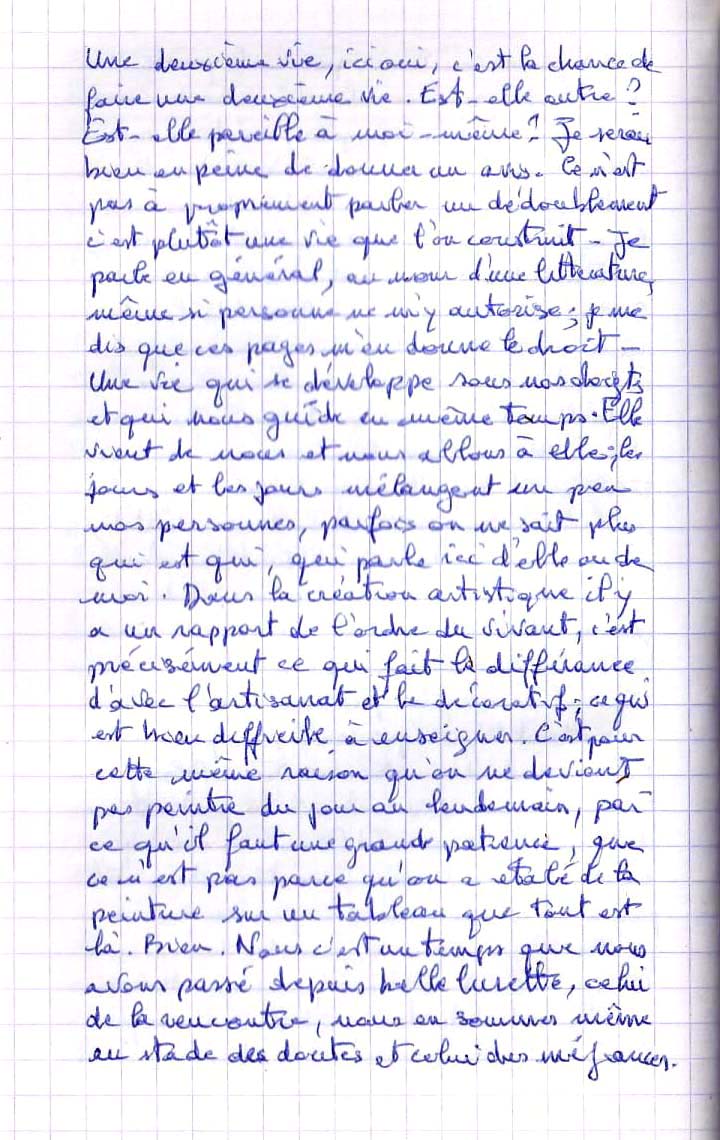 Une deuxième vie, ici oui, c'est la chance de
faire une deuxième vie. Est-elle autre ?
Est-elle pareille à moi-même ? Je serais
bien en peine de donner un avis. Ce n'est
pas à proprement parler un dédoublement
c'est plutôt une vie que l'on construit - Je
parle en général, au nom d'une littérature,
même si personne ne m'y autorise ; je me
dis que ces pages m'en donne le droit -
Une vie qui se développe sous nos doigts
et qui nous guide en même temps. Elle
vient de nous et nous allons à elle ; les
jours et les jours mélangent un peu
nos personnes, parfois on ne sait plus
qui est qui, qui parle ici d'elle ou de
moi. Dans la création artistique il y
a un rapport de l'ordre du vivant, c'est
précisément ce qui fait la différance
d'avec l'artisanat et le décoratif ; ce qui
est bien difficile à enseigner. C'est pour
cette même raison qu'on ne devient
pas peintre du jour au lendemain, par
ce qu'il faut une grande patience, que
ce n'est pas parce qu'on a étalé de la
peinture sur un tableau que tout est
là. Bien. Nous c'est un temps que nous
avons passé depuis belle lurette, celui
de la rencontre, nous en sommes même
au stade des doutes et celui des méfiances.